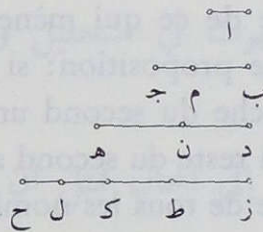 ا
ب م ج
د ن ه
ز ط ك ل ح